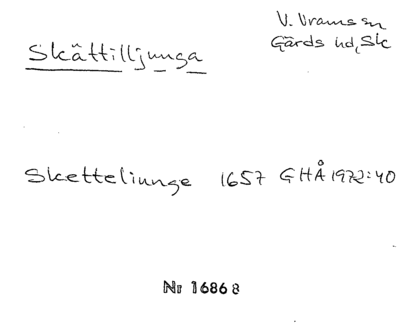 V. Vrams sn
Gärds hd, Sk
Skättilljunga
Sketteliunge 1657 GHÅ 1972:40
Nr 16868